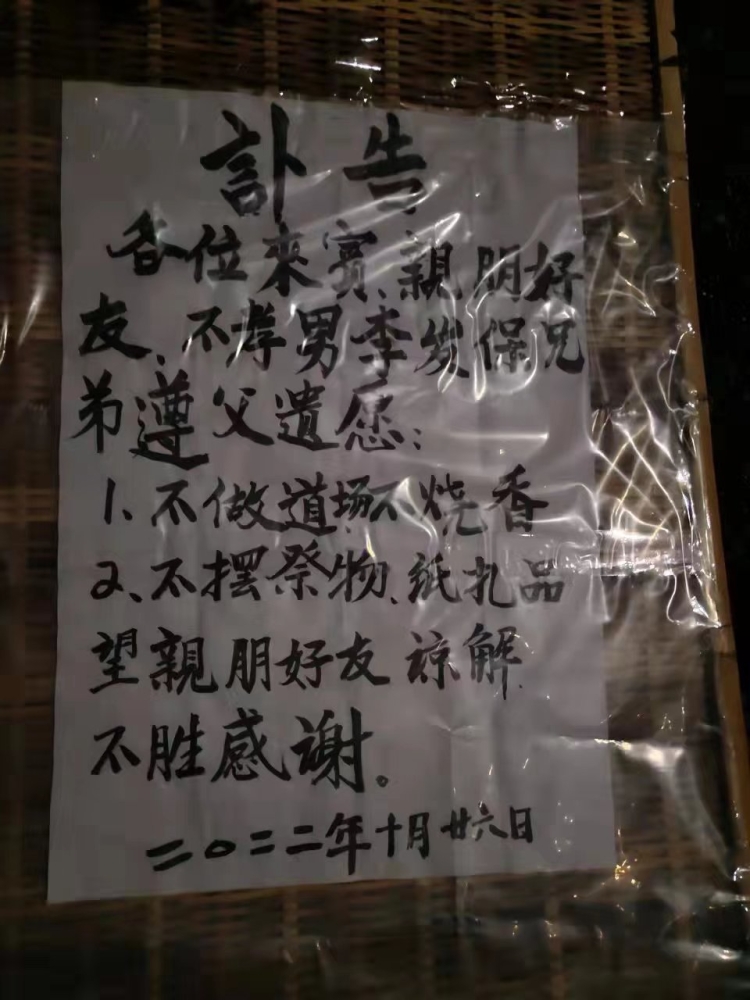 訃告
各位來賓、親朋好
友、不孝男李发保兄
弟遵父遺愿：
1、不做道场不烧香
2、不摆祭物、纸扎品
望親朋好友谅解
不胜感谢。
二〇二二年十月廿六日